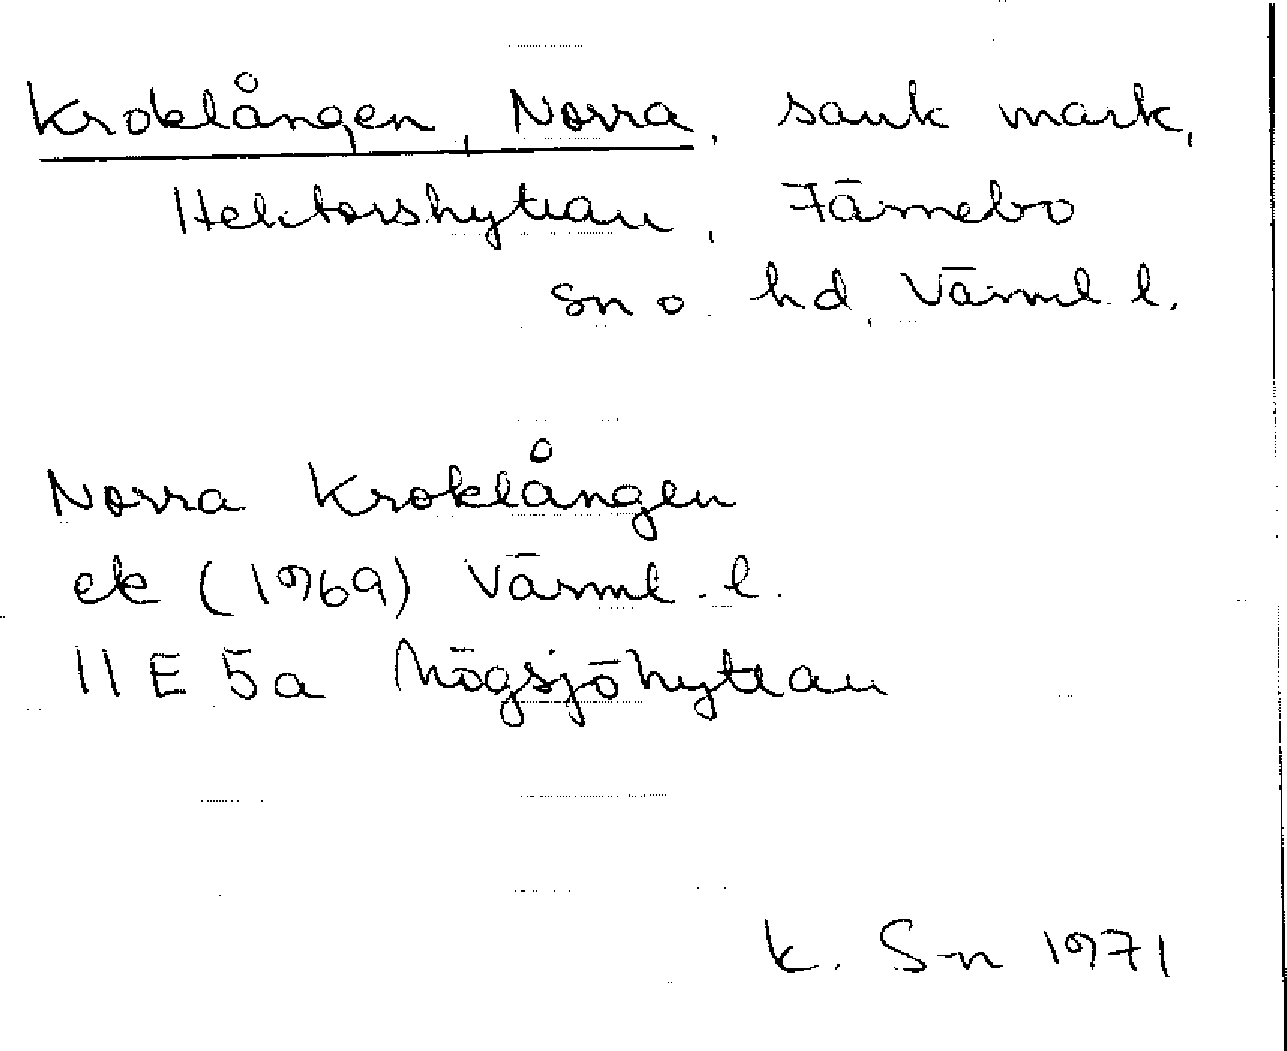 Kroklången, Norra, sank mark,
Hektorshyttan, Färnebo
sn o hd, Värml. l.
Norra Kroklången
ek (1969) Värml. l.
11 E 5a Högsjöhyttan
K. S-n 1971